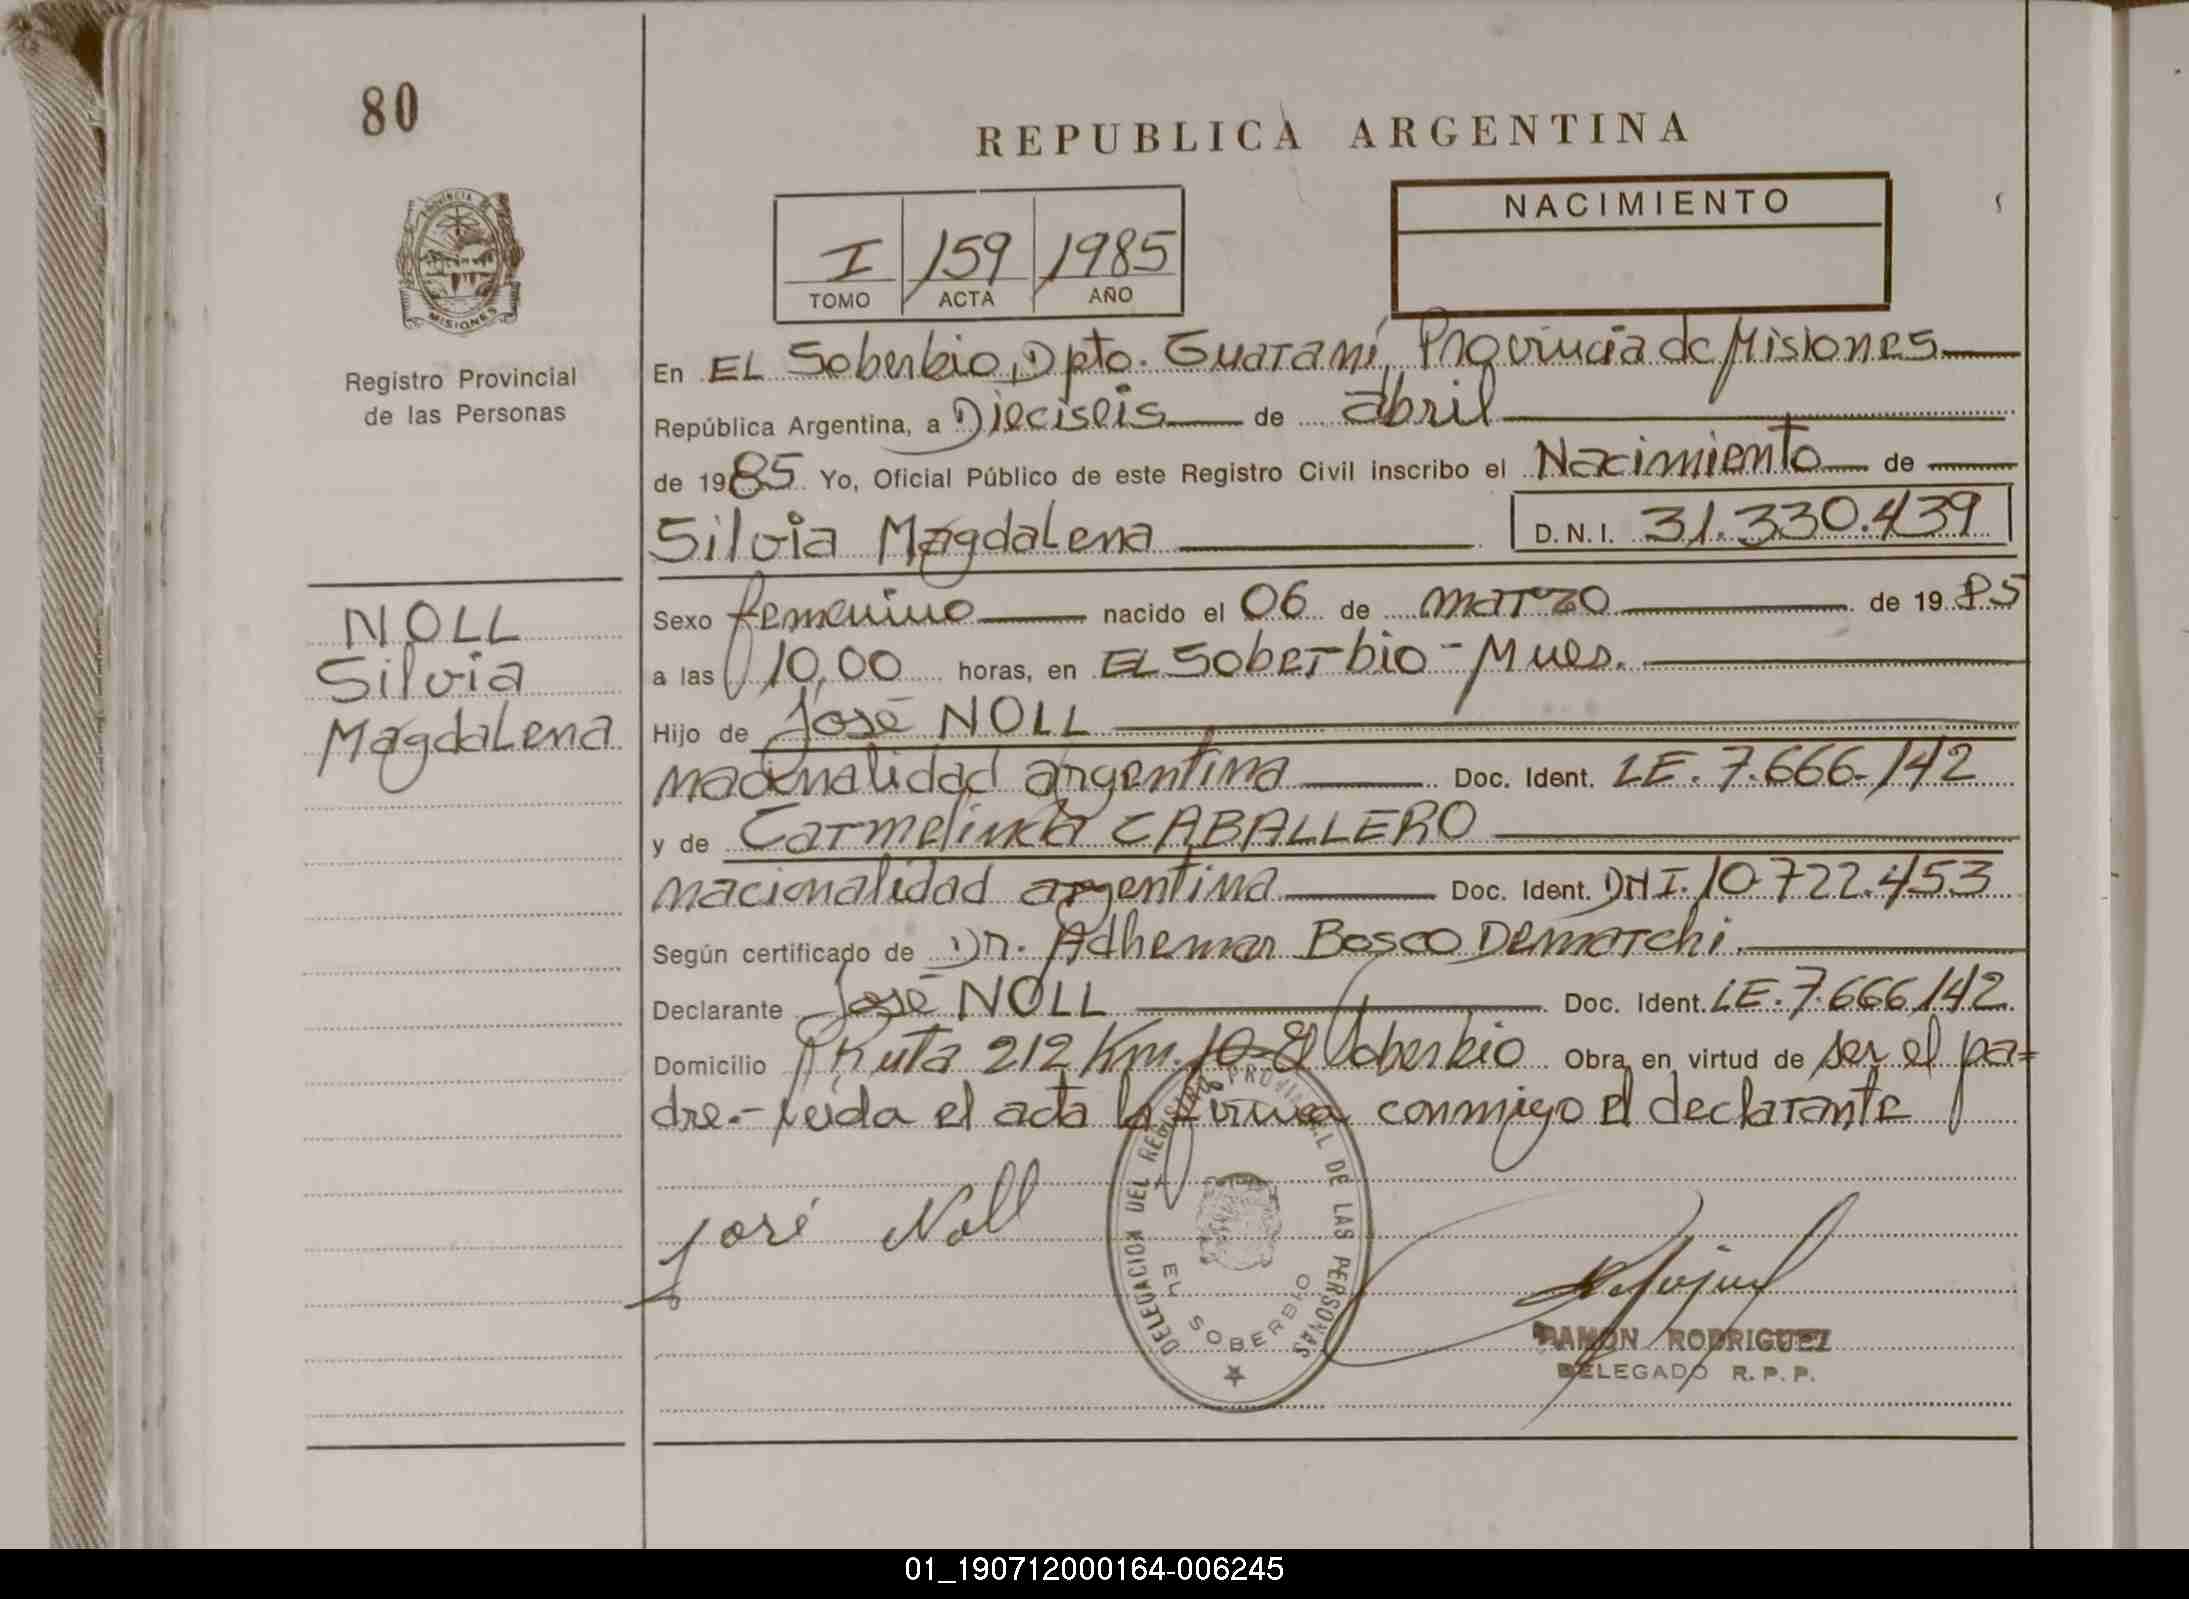 80
REPUBLICA ARGENTINA
PROVINCIA DE
MISIONES
Registro Provincial
de las Personas
I 159 1985
TOMO ACTA AÑO
NACIMIENTO
En EL Soberbio, Dpto. Guaraní, Provincia de Misiones
República Argentina, a Dieciseis de abril
de 1985 Yo, Oficial Público de este Registro Civil inscribo el Nacimiento de
Silvia Magdalena D.N.I. 31.330.439
NOLL
Silvia
Magdalena
Sexo femenino nacido el 06 de marzo de 1985
a las 10,00 horas, en EL Soberbio - Mnes.
Hijo de José NOLL
nacionalidad argentina Doc. Ident. LE. 7.666.142
y de Carmelinda CABALLERO
nacionalidad argentina Doc. Ident. DNI. 10.722.453
Según certificado de Dr. Adhemar Bosco Demarchi.
Declarante José NOLL Doc. Ident. LE. 7.666.142
Domicilio Ruta 212 Km. 10-El Soberbio Obra en virtud de ser el pa=
dre.- Leida el acta la firma conmigo el declarante
José Noll
DELEGACION DEL REGISTRO PROVINCIAL DE LAS PERSONAS
EL SOBERBIO
RAMON RODRIGUEZ
DELEGADO R.P.P.
01_190712000164-006245